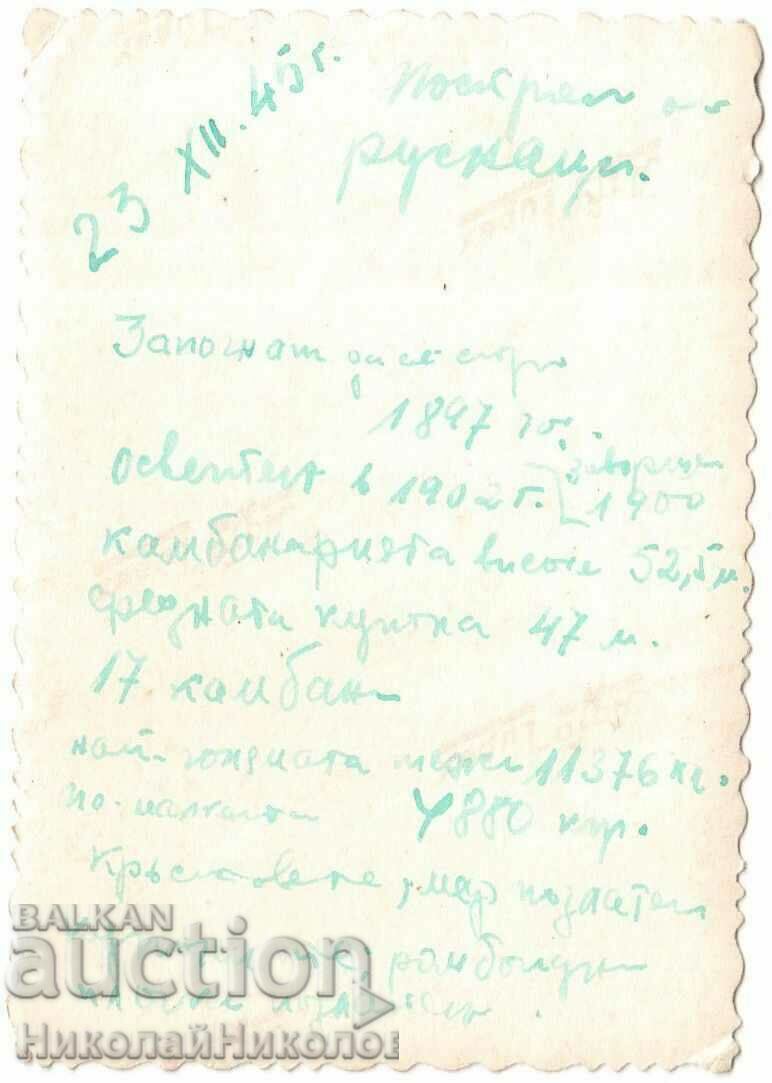 23 XII. 45 г.
рускаци.
Започнат да се
1897 го.
осветен в 1902 г. завършен
1900
камбанарията висока 52,5 м.
средната купола 47 м.
17 камбани
най-голямата тежи 11376 кг.
по-малката 4880 кгр.
Кръстовете, позлатени
BALKAN
auction
НиколайНиколов